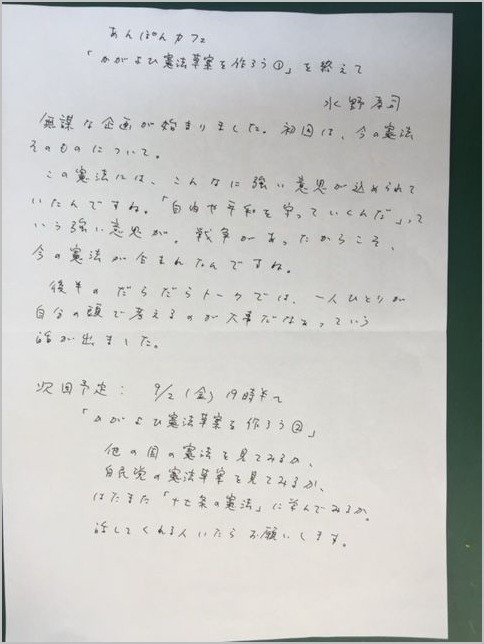 あんぽんカフェ
「かがよひ憲法草案を作ろう①」を終えて
水野
無謀な企画が始まりました。初回は、今の憲法
そのものについて。
この憲法には、こんなに強い意思が込められて
いたんですね。「自由や平和を守っていくんだ」って
いう強い意思が。戦争があったからこそ、
今の憲法が生まれたんですね。
後半のだらだらトークでは、一人ひとりが
自分の頭で考えるのが大事だなぁっていう
話が出ました。
次回予定： 9/2 (金) 19時半〜
「かがよひ憲法草案を作ろう②」
他の国の憲法を見てみるか、
自民党の憲法草案を見てみるか、
はたまた「十七条の憲法」に学んでみるか。
話してくれる人いたらお願いします。